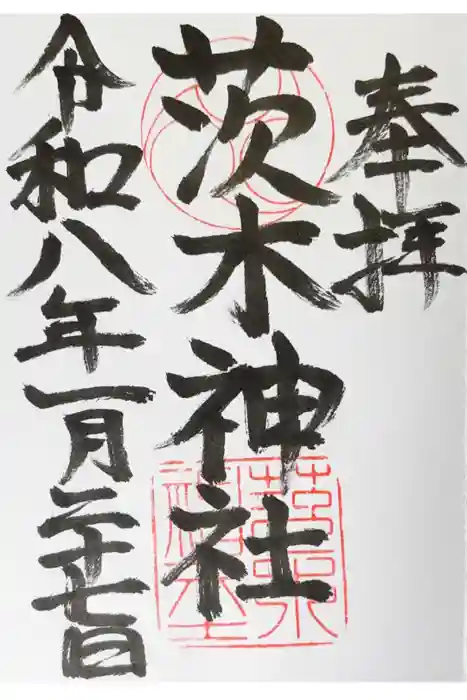 奉拝
茨木神社
令和八年一月二十七日
茨木
神社